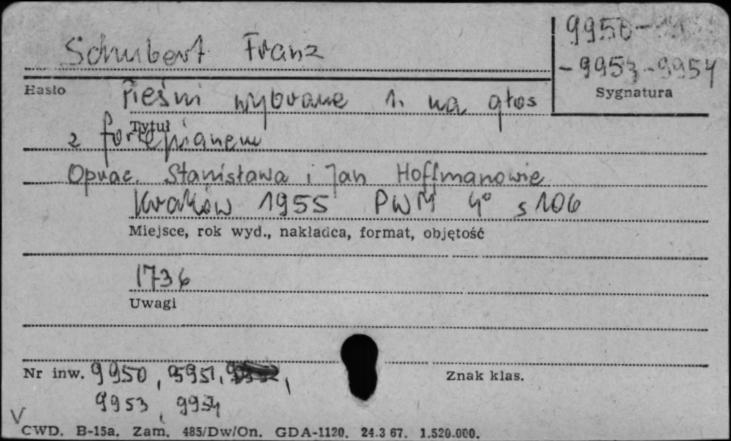 Schubert Franz
9950-
-9953-9954
Sygnatura
Hasło
Pieśni wybrane 1. na głos
Tytuł
z fortepianem
Oprac. Stanisława i Jan Hoffmanowie
Kraków 1955 PWM 4° s 106
Miejsce, rok wyd., nakładca, format, objętość
1736
Uwagi
Nr inw. 9950, 9951,
Znak klas.
9953, 9954
V
CWD. B-15a. Zam. 485/Dw/On. GDA-1120. 24.3 67. 1.520.000.